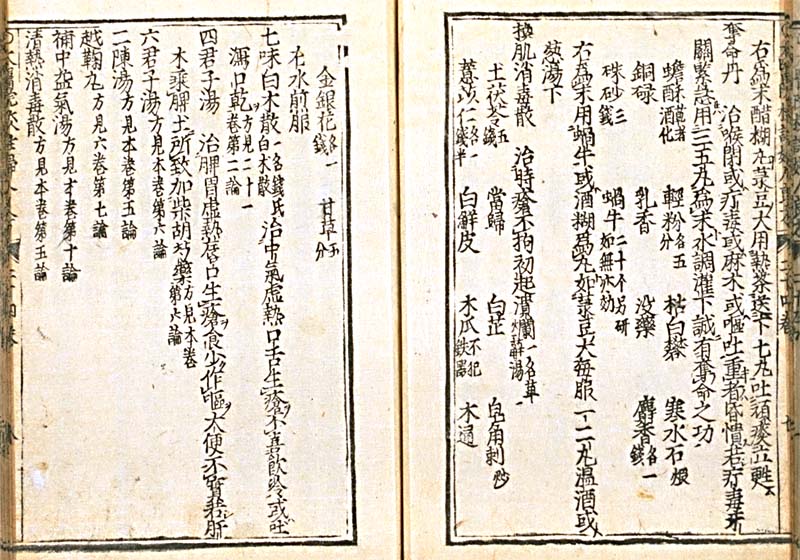 右爲末醋糊丸菉豆大用熱茶送下七丸吐頑痰立甦
奪命丹 治喉閉或疔毒或麻木或嘔吐重者昏憒若疔毒牙
關緊急用三五丸爲末水調灌下誠有奪命之功
蟾酥 酒化 輕粉 各五分 枯白礬 寒水石 煅
銅碌 乳香 没藥 麝香 各一錢
硃砂 三錢 蝸牛 二十个另研 如無亦効
右爲末用蝸牛或酒糊爲丸如菉豆大每服一二丸温酒或
葱湯下
換肌消毒散 治時瘡不拘初起潰爛 一名草薢湯
土茯苓 五錢 當歸 白芷 皂角刺 炒
薏苡仁 各一錢半 白鮮皮 木瓜 不犯鐵器 木通
金銀花 各一錢 甘草 五分
右水煎服
七味白术散 一名錢氏白术散 治中氣虚熱口舌生瘡不喜飲冷或吐
瀉口乾 方見二十一卷第二論
四君子湯 治脾胃虚熱唇口生瘡食少作嘔大便不實若肝
木乘脾土所致加柴胡芍藥 方見本卷第六論
六君子湯 方見本卷第六論
二陳湯 方見本卷第五論
越鞠丸 方見六卷第七論
補中益氣湯 方見才卷第十論
清熱消毒散 方見本卷第五論
二十四卷